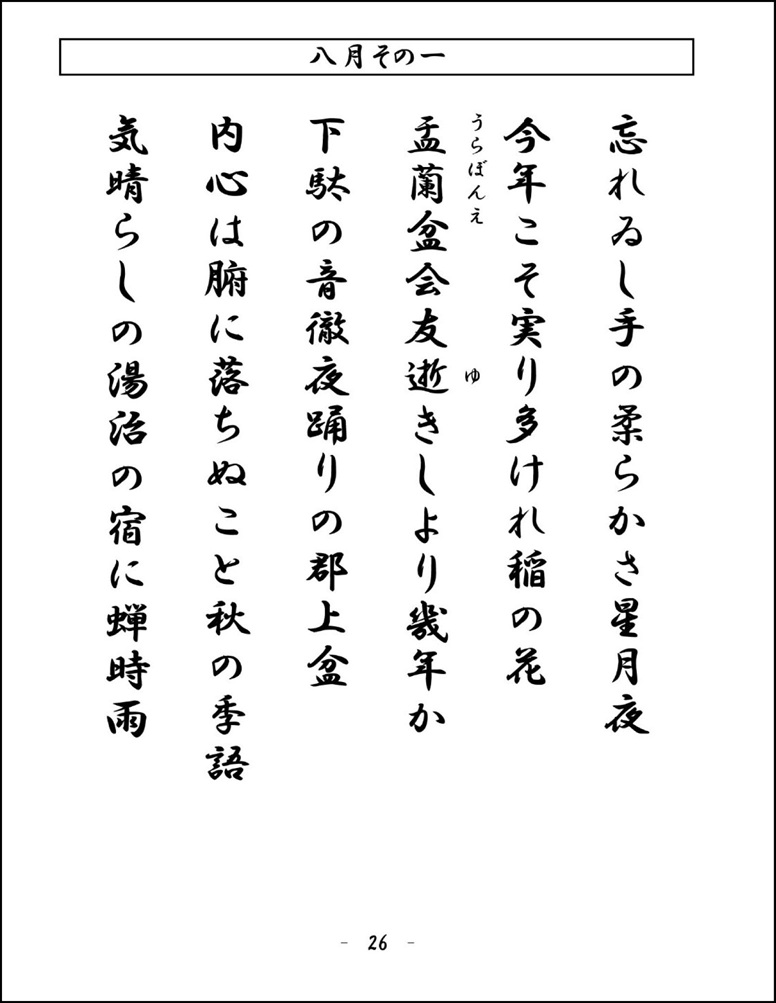 八月その一
忘れゐし手の柔らかさ星月夜
今年こそ実り多けれ稲の花
うらぼんえ ゆ
盂蘭盆会友逝きしより幾年か
下駄の音徹夜踊りの郡上盆
内心は腑に落ちぬこと秋の季語
気晴らしの湯治の宿に蝉時雨
- 26 -